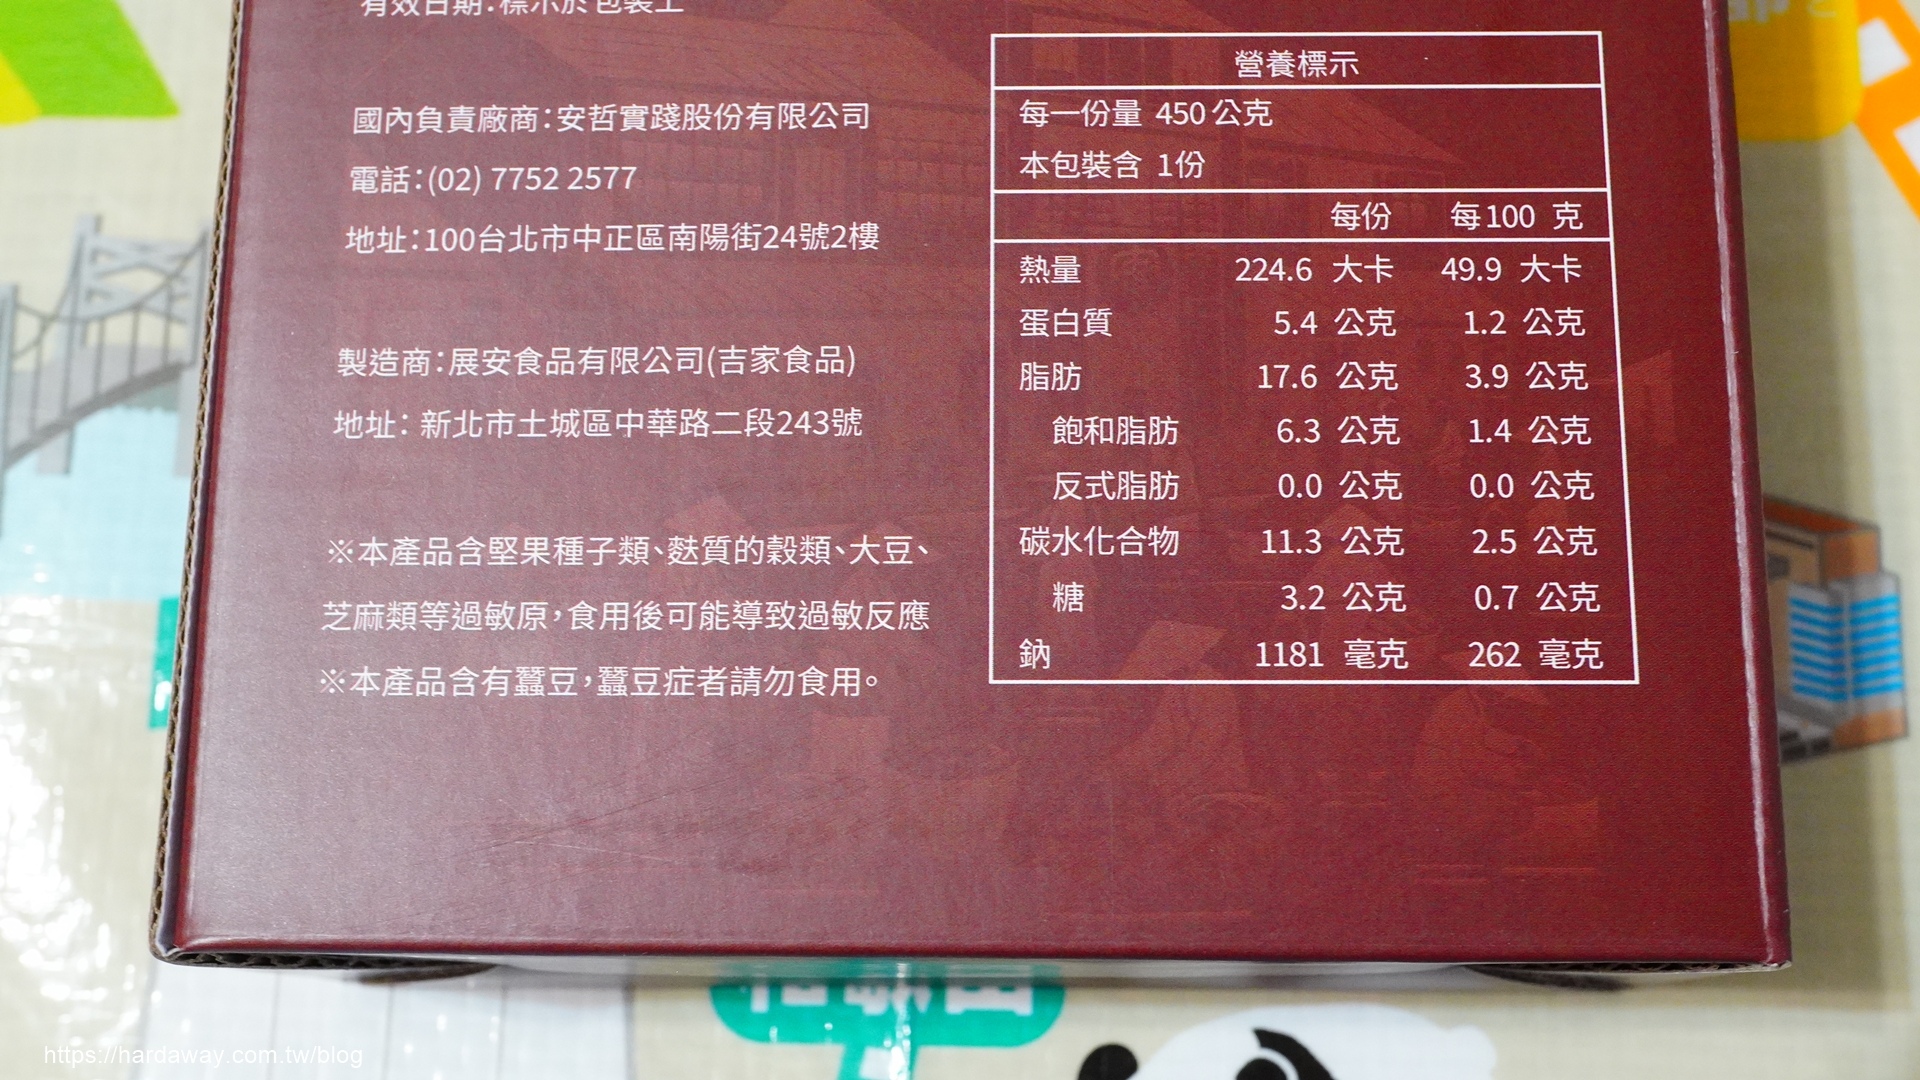 有效日期：標示於包裝上
國內負責廠商：安哲實踐股份有限公司
電話：(02) 7752 2577
地址：100台北市中正區南陽街24號2樓
製造商：展安食品有限公司(吉家食品)
地址： 新北市土城區中華路二段243號
※本產品含堅果種子類、麩質的穀類、大豆、
芝麻類等過敏原，食用後可能導致過敏反應
※本產品含有蠶豆，蠶豆症者請勿食用。
營養標示
每一份量 450公克
本包裝含 1份
每份 每100 克
熱量 224.6 大卡 49.9 大卡
蛋白質 5.4 公克 1.2 公克
脂肪 17.6 公克 3.9 公克
飽和脂肪 6.3 公克 1.4 公克
反式脂肪 0.0 公克 0.0 公克
碳水化合物 11.3 公克 2.5 公克
糖 3.2 公克 0.7 公克
鈉 1181 毫克 262 毫克
https://hardaway.com.tw/blog